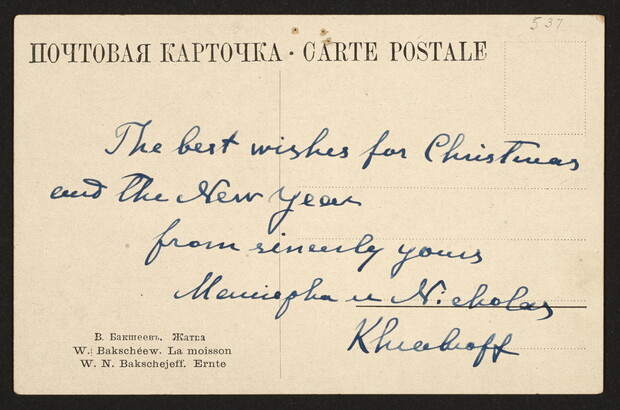 537
ПОЧТОВАЯ КАРТОЧКА · CARTE POSTALE
The best wishes for Christmas
and the New Year
from sincerely yours
и Nicholas
В. Бакшеевъ. Жатва
W. Bakschéew. La moisson
W. N. Bakschejeff. Ernte